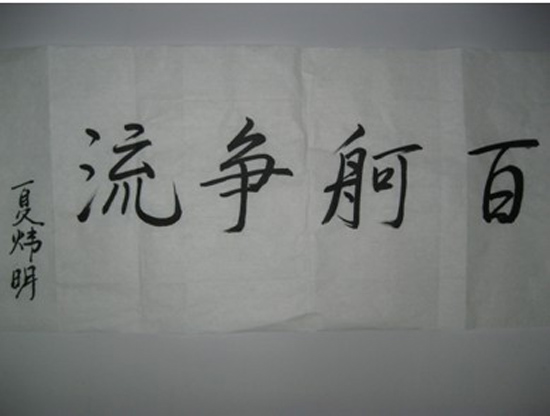 百舸争流
夏炜明